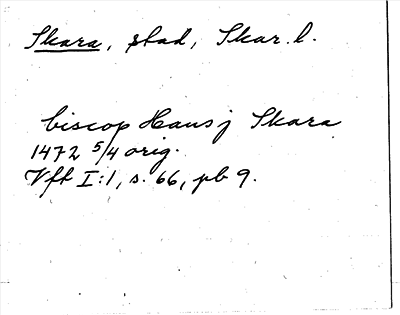 Skara, stad, Skar. l.
biscop Hans j Skara
1472 5/4 orig.
Vft I:1, s. 66, pb 9.